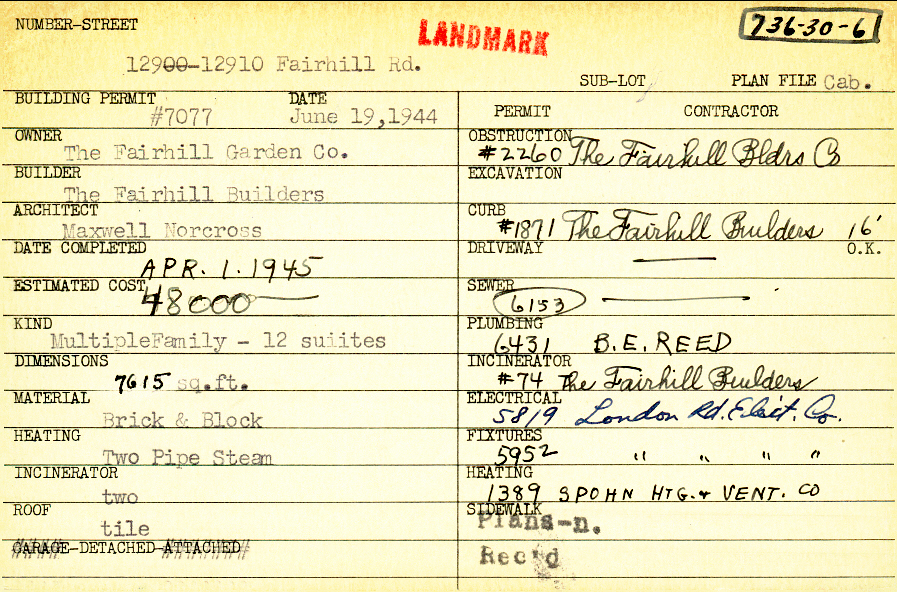 NUMBER-STREET
LANDMARK
736-30-6
12900-12910 Fairhill Rd.
SUB-LOT
PLAN FILE Cab.
BUILDING PERMIT #7077
DATE June 19,1944
OWNER
The Fairhill Garden Co.
BUILDER
The Fairhill Builders
ARCHITECT
Maxwell Norcross
DATE COMPLETED
APR. 1. 1945
ESTIMATED COST
48000
KIND
MultipleFamily - 12 suiites
DIMENSIONS
7615 sq.ft.
MATERIAL
Brick & Block
HEATING
Two Pipe Steam
INCINERATOR
two
ROOF
tile
GARAGE-DETACHED-ATTACHED
PERMIT CONTRACTOR
OBSTRUCTION
#2260 The Fairhill Bldrs Co
EXCAVATION
CURB
#1871 The Fairhill Builders 16'
DRIVEWAY O.K.
SEWER
6153
PLUMBING
6431 B.E. REED
INCINERATOR
#74 The Fairhill Builders
ELECTRICAL
5819 London Rd. Elect. Co.
FIXTURES
5952 " " " "
HEATING
1389 SPOHN HTG. & VENT. CO
SIDEWALK
Plans-n.
Record